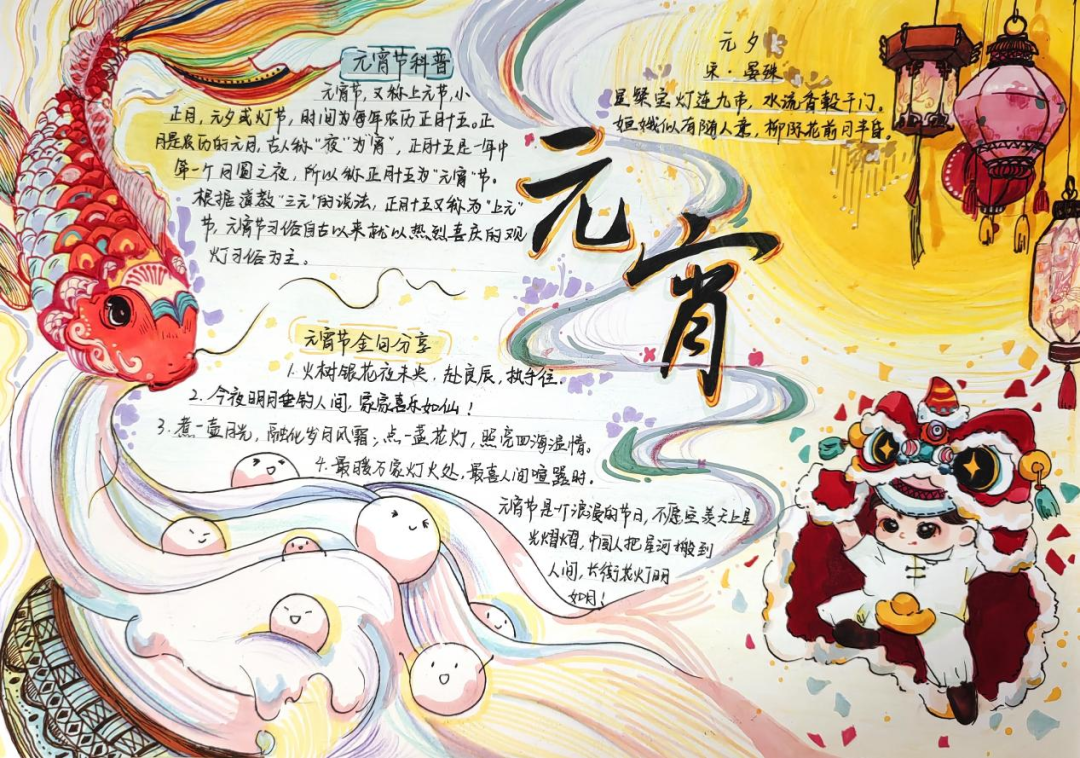 元宵节科普
元宵节，又称上元节，小
正月，元夕或灯节，时间为每年农历正月十五。正
月是农历的元月，古人称"夜"为"宵"，正月十五是一年中
第一个月圆之夜，所以称正月十五为"元宵"节。
根据道教"三元"的说法，正月十五又称为"上元"
节，元宵节习俗自古以来就以热烈喜庆的观
灯习俗为主。
元宵节金句分享
1.火树银花夜未央，赴良辰，执手往。
2.今夜明月垂钓人间，家家喜乐如仙！
3.煮一壶月光，融化岁月风霜；点一盏花灯，照亮四海温情。
4.最暖万家灯火处，最喜人间喧嚣时。
元宵节是个浪漫的节日，不愿空羡天上星
光熠熠，中国人把星河搬到
人间，长街花灯明
如月！
元宵
元夕
宋·晏殊
星繁宝灯连九市，水流香毂千门。
姮娥似有随人意，柳际花前月半